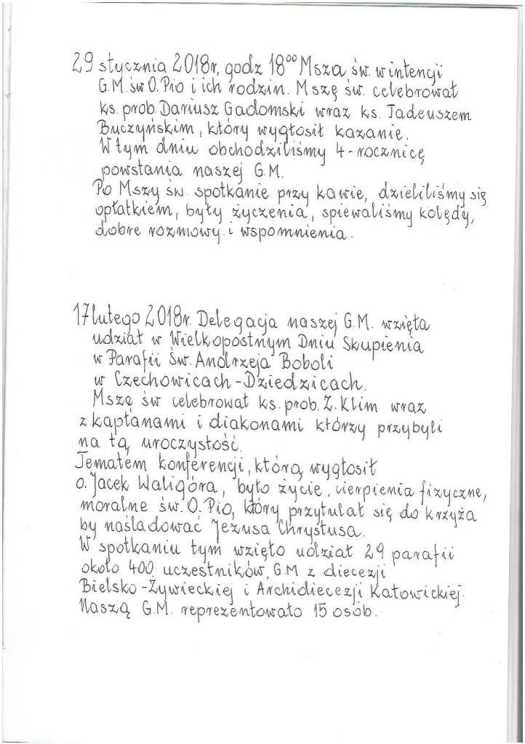 29 stycznia 2018r, godz 18⁰⁰ Msza św. w intencji
G.M. św O. Pio i ich rodzin. Mszę św. celebrował
ks. prob. Dariusz Gadomski wraz ks. Tadeuszem
Buczyńskim, który wygłosił kazanie.
W tym dniu obchodziliśmy 4-rocznicę
powstania naszej G.M.
Po Mszy św. spotkanie przy kawie, dzieliliśmy się
opłatkiem, były życzenia, śpiewaliśmy kolędy,
dobre rozmowy i wspomnienia.
17 lutego 2018r. Delegacja naszej G.M. wzięła
udział w Wielkopostnym Dniu Skupienia
w Parafii Św. Andrzeja Boboli
w Czechowicach-Dziedzicach.
Mszę św celebrował ks. prob. Z. Klim wraz
z kapłanami i diakonami którzy przybyli
na tą uroczystość.
Tematem konferencji, którą wygłosił
o. Jacek Waligóra, było życie, cierpienia fizyczne,
moralne św. O. Pio, który przytulał się do krzyża
by naśladować Jezusa Chrystusa.
W spotkaniu tym wzięło udział 29 parafii
około 400 uczestników, G.M z diecezji
Bielsko-Żywieckiej i Archidiecezji Katowickiej.
Naszą G.M. reprezentowało 15 osób.